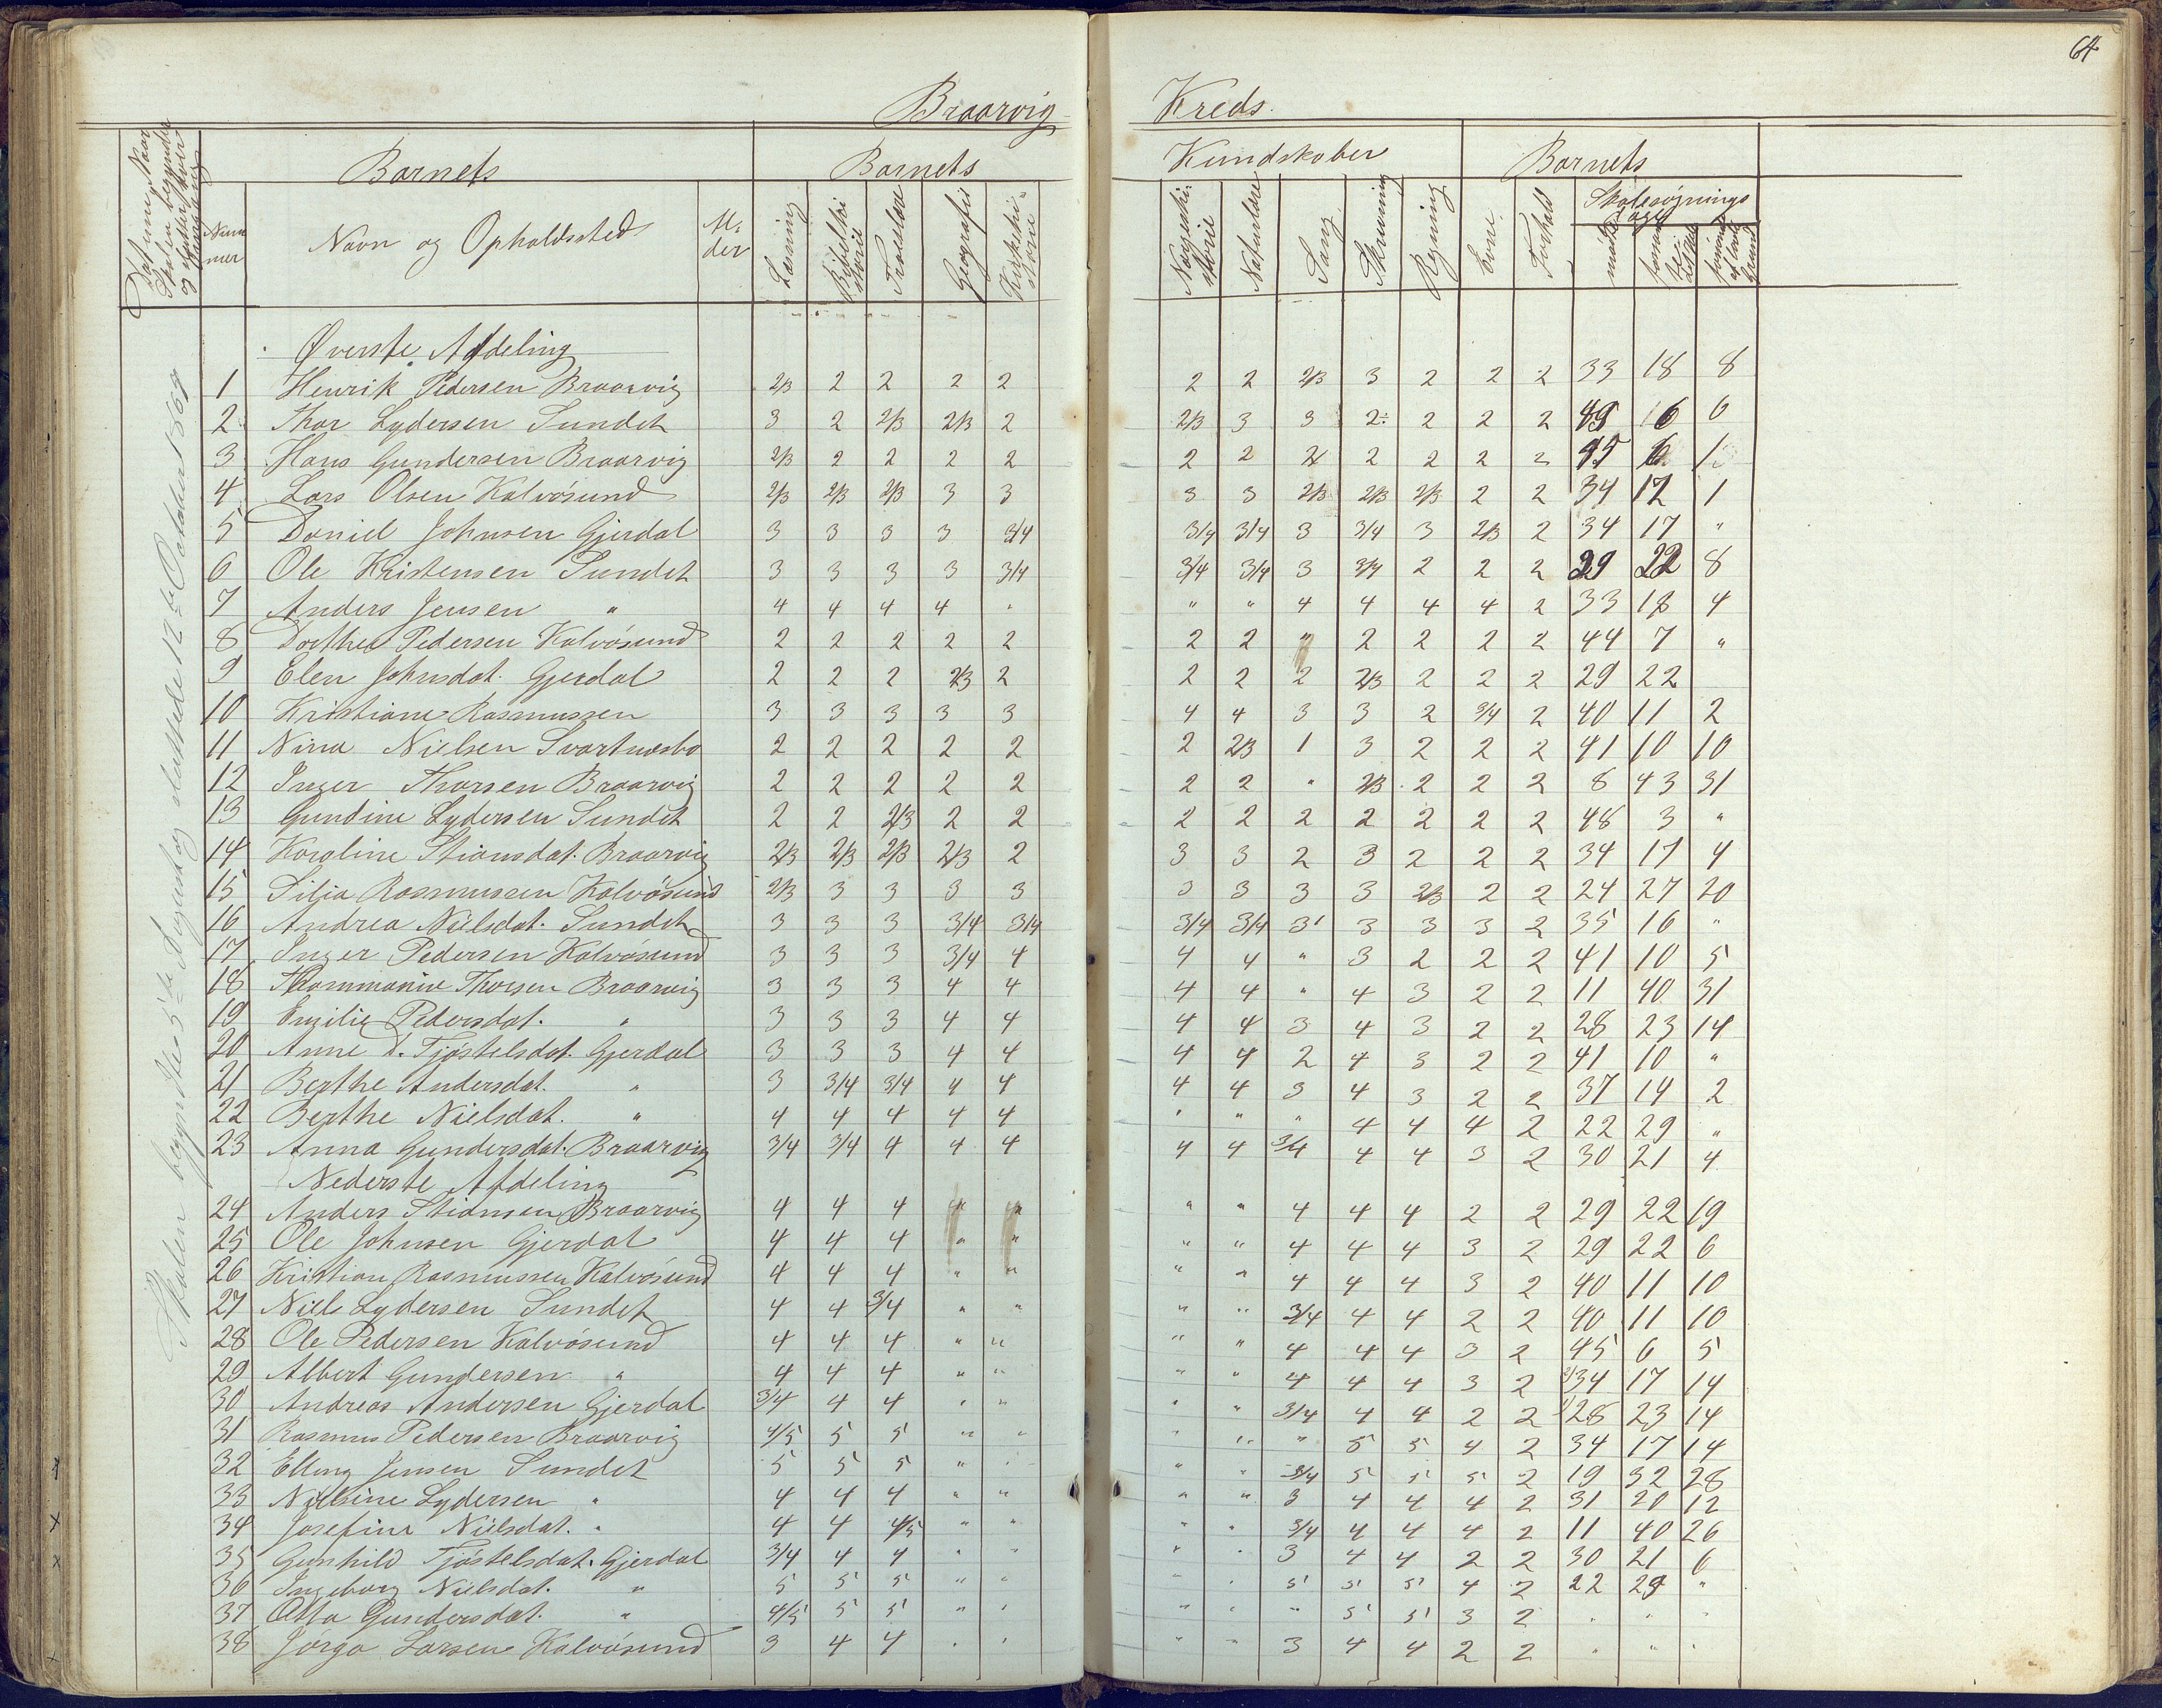 64
Braarvig Kreds.
Datum, Naar Skolen begynder og slutter hver
Barnets
Barnets
Kundskaber
Barnets
Num mer
Navn og Opholdssted
Al- der
Læsning
Bibelhi storie
Troeslære
Geografi
Kirkehi- storie
Norgeshi- storie
Naturlære
Sang
Skrivning
Regning
Evne.
Forhold
Skolesøgnings dage
mødte
forsømte
Skolen begyndte 5te August og sluttede 12te October 1867
Øverste Afdeling
1 Henrik Pedersen Braarvig 2/3 2 2 2 2 2 2 2/3 3 2 2 2 33 18 8
2 Thor Lydersen Sundet 3 2 2/3 2/3 2 2/3 3 3 2÷ 2 2 2 45 6 6
3 Hans Gundersen Braarvig 2/3 2 2 2 2 2 2 2 2 2 2 2 45 6 1
4 Lars Olsen Kalvøsund 2/3 2/3 2/3 3 3 3 3 2/3 2/3 2/3 2 2 34 17 1
5 Daniel Johnsen Gjerdal 3 3 3 3 3/4 3/4 3/4 3 3/4 3 2/3 2 34 17 "
6 Ole Kristensen Sundet 3 3 3 3 3/4 3/4 3/4 3 3/4 2 2 2 29 22 8
7 Anders Jensen " 4 4 4 4 " " " 4 4 4 4 2 33 18 4
8 Dorthea Pedersen Kalvøsund 2 2 2 2 2 2 2 " 2 2 2 2 44 7 "
9 Elen Johnsdat. Gjerdal 2 2 2 2/3 2 2 2 2 2/3 2 2 2 29 22
10 Kristiane Rasmussen 3 3 3 3 3 4 4 3 3 2 3/4 2 40 11 2
11 Nina Nielsen Svartnæsbo 2 2 2 2 2 2 2/3 1 3 2 2 2 41 10 10
12 Inger Thorsen Braarvig 2 2 2 2 2 2 2 " 2/3 2 2 2 8 43 31
13 Gundine Lydersen Sundet 2 2 2/3 2 2 2 2 2 2 2 2 2 48 3 "
14 Karoline Stiansdat. Braarvig 2/3 2/3 2/3 2/3 2 3 3 2 3 2 2 2 34 17 4
15 Silia Rasmussen Kalvøsund 2/3 3 3 3 3 3 3 3 3 2/3 2 2 24 27 20
16 Andrea Nielsdat. Sundet 3 3 3 3/4 3/4 3/4 3/4 3 3 3 3 2 35 16 "
17 Inger Pedersen Kalvøsund 3 3 3 3/4 4 4 4 " 3 2 2 2 41 10 5
18 Thommanie Thorsen Braarvig 3 3 3 4 4 4 4 " 4 3 2 2 11 40 31
19 Emilie Pedersdat. " 3 3 3 4 4 4 4 3 4 3 2 2 28 23 14
20 Anne D. Tjøstelsdat. Gjerdal 3 3 3 4 4 4 4 2 4 3 2 2 41 10 "
21 Berthe Andersdat. " 3 3/4 3/4 4 4 4 4 3 4 3 2 2 37 14 2
22 Berthe Nielsdat. " 4 4 4 4 4 " " " 4 4 4 2 22 29 "
23 Anna Gundersdat. Braarvig 3/4 3/4 4 4 4 4 4 3/4 4 4 3 2 30 21 4
Nederste Afdeling
24 Anders Stiansen Braarvig 4 4 4 " " " " 4 4 4 2 2 29 22 19
25 Ole Johnsen Gjerdal 4 4 4 " " " " 4 4 4 3 2 29 22 6
26 Kristian Rasmussen Kalvøsund 4 4 4 " " " " 4 4 4 3 2 40 11 10
27 Niel Lydersen Sundet 4 4 3/4 " " " " 3/4 4 4 2 2 40 11 10
28 Ole Pedersen Kalvøsund 4 4 4 " " " " 4 4 4 3 2 45 6 5
29 Albert Gundersen " 4 4 4 " " " " 4 4 4 3 2 34 17 14
30 Andreas Andersen Gjerdal 3/4 4 4 " " " " 3/4 4 4 2 2 28 23 14
31 Rasmus Pedersen Braarvig 4/5 5 5 " " " " " 5 5 4 2 34 17 14
32 Elling Jensen Sundet 5 5 5 " " " " 3/4 5 5 5 2 19 32 28
33 Nielsine Lydersen " 4 4 4 " " " " 3 4 4 4 2 31 20 12
34 Josefine Nielsdat. " 4 4 4/5 " " " " 3/4 4 4 4 2 11 40 26
35 Gunhild Tjøstelsdat. Gjerdal 3/4 4 4 " " " " 3 4 4 2 2 30 21 6
36 Ingeborg Nielsdat. " 5 5 5 " " " " 5 5 5 4 2 22 29 "
37 Atta Gundersdat. " 4/5 5 5 " " " " " 5 5 3 2 " " "
38 Jørga Larsen Kalvøsund 3 4 4 " " " " 3 4 4 2 2 " " "